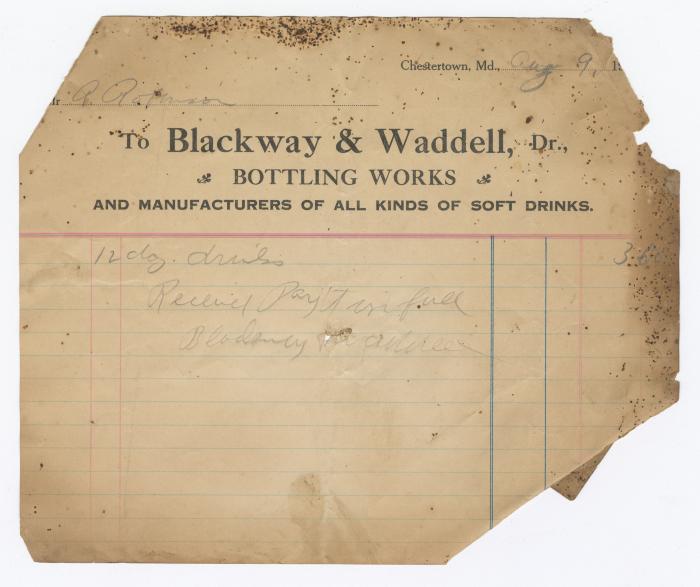 Chestertown, Md., Aug 9, 1
Mr A Robinson
To Blackway & Waddell, Dr.,
BOTTLING WORKS
AND MANUFACTURERS OF ALL KINDS OF SOFT DRINKS.
12 doz. drinks 3.60
Received Pay't in full
Blackway & Waddell